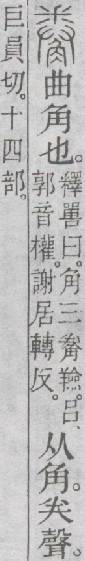 觠曲角也。釋嘼曰。角三觠羷。呂、
郭音權。謝居轉反。从角。龹聲。
巨員切。十四部。